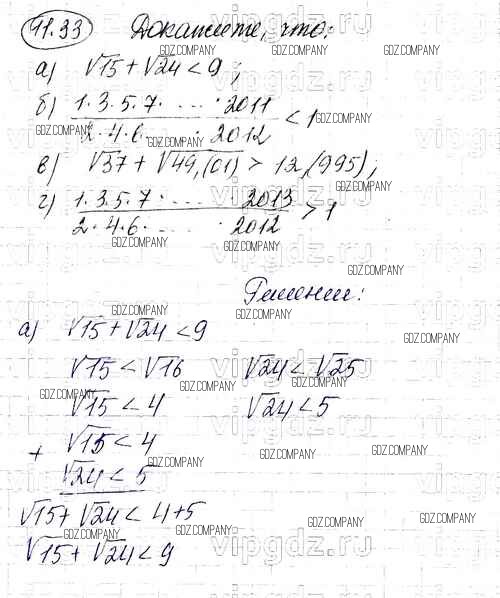 41.33 Докажите, что:
а) √15 + √24 < 9;
б) 1·3·5·7· ... ·2011 / 2·4·6· ... ·2012 < 1
в) √37 + √49,(01) > 12,(995);
г) 1·3·5·7· ... ·2013 / 2·4·6· ... ·2012 > 1
Решение:
а) √15 + √24 < 9
√15 < √16 √24 < √25
√15 < 4 √24 < 5
+ √15 < 4
√24 < 5
√15 + √24 < 4+5
√15 + √24 < 9
GDZ.COMPANY
vipgdz.ru